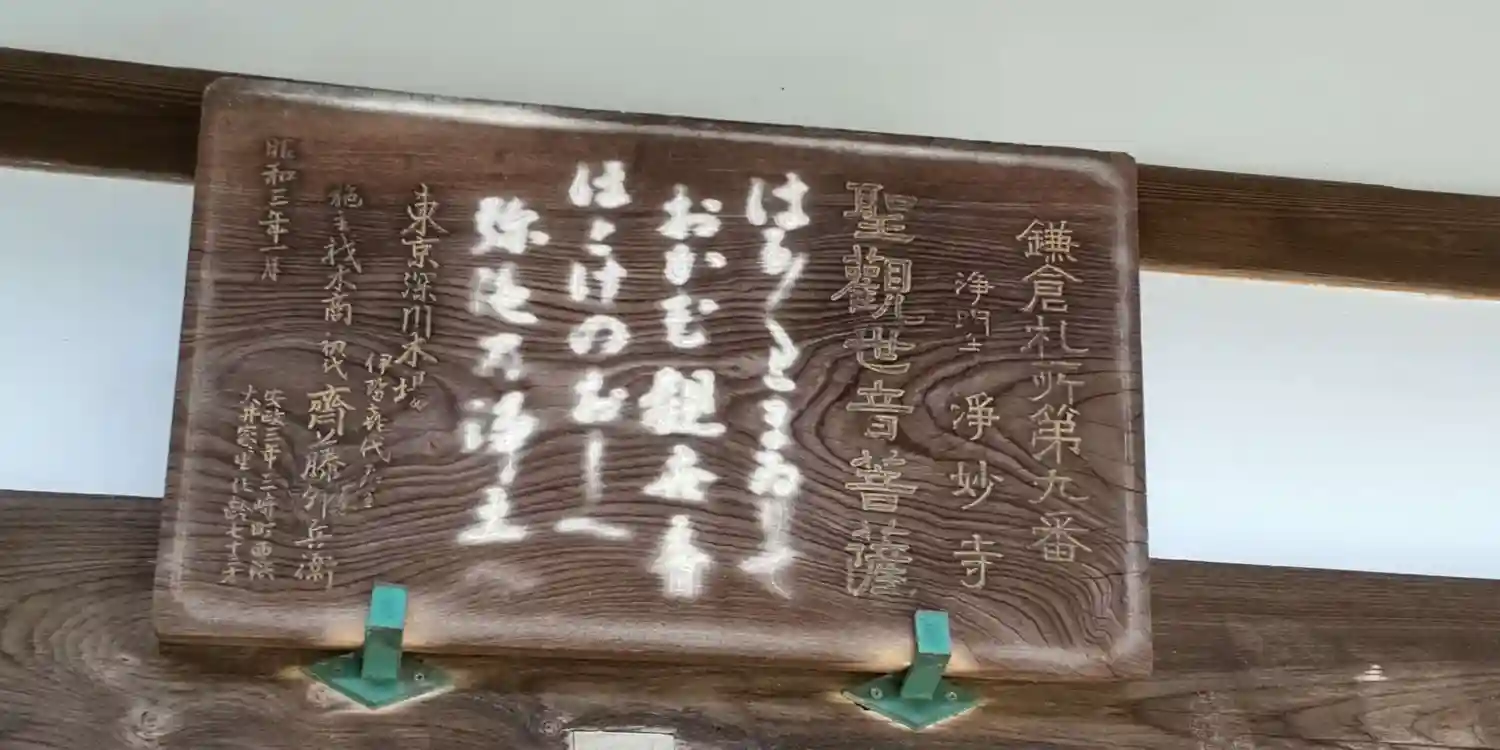 鎌倉札所第九番
浄明寺 淨妙寺
聖觀世音菩薩
はる〲とまゐりて
おがむ觀世音
ほとけのおしへ
弥陀の浄土
東京深川木場
伊勢喜代
施主 材木商 初代 齊藤卯兵衛
昭和三年一月
安政三年三崎町西浜
大井家生 七十三才